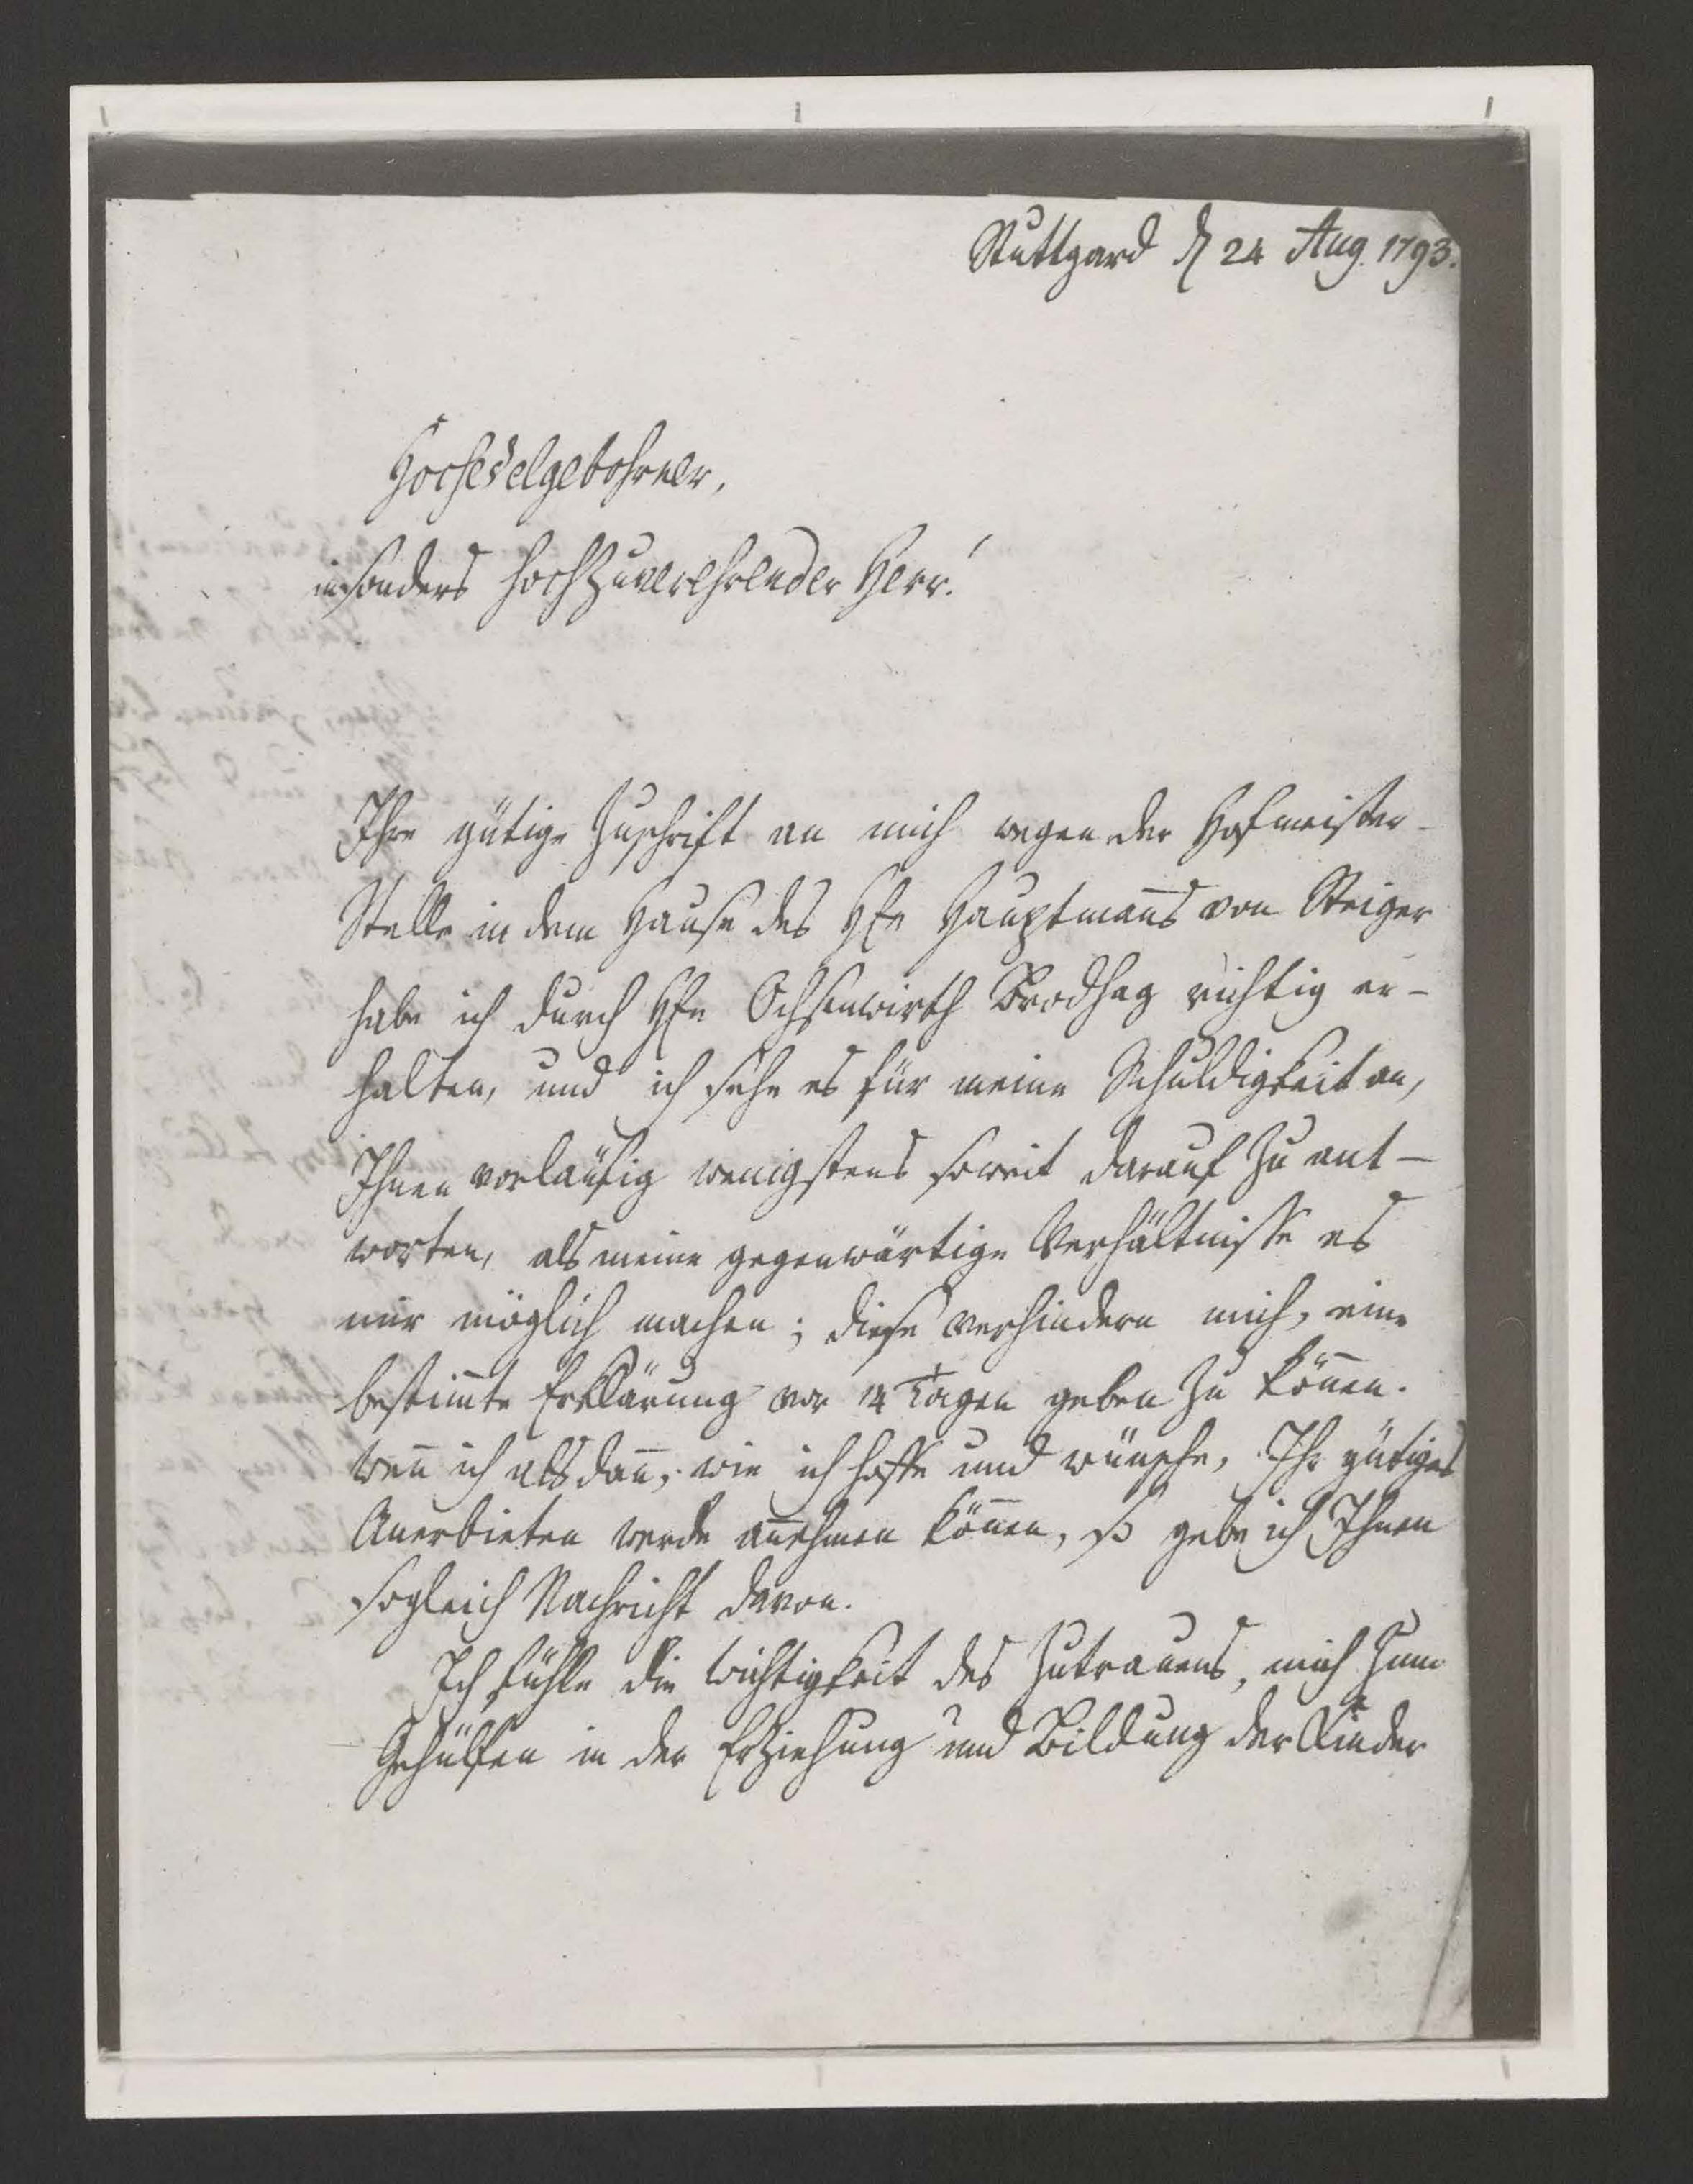 Stuttgard d 24 Aug. 1793.
Hochedelgebohrner,
insonders Hochzuverehrender Herr!
Ihre gütige Zuschrift an mich wegen der Hofmeister-
Stelle in dem Hause des Hrn Hauptmañs von Steiger
habe ich durch Hrn Ochsenwirth Brodhag richtig er-
halten, und ich sehe es für meine Schuldigkeit an,
Ihnen vorläufig wenigstens soweit darauf zu ant-
worten, als meine gegenwärtige Verhältnisse es
mir möglich machen; diese verhindern mich, eine
bestim̄te Erklärung vor 14 Tagen geben zu köñen.
Weñ ich alsdañ, wie ich hoffe und wünsche, Ihr gütiges
Anerbieten werde añehmen köñen, so gebe ich Ihnen
sogleich Nachricht davon.
Ich fühle die Wichtigkeit des Zutrauens, mich zum
Gehülfen in der Erziehung und Bildung der Kinder